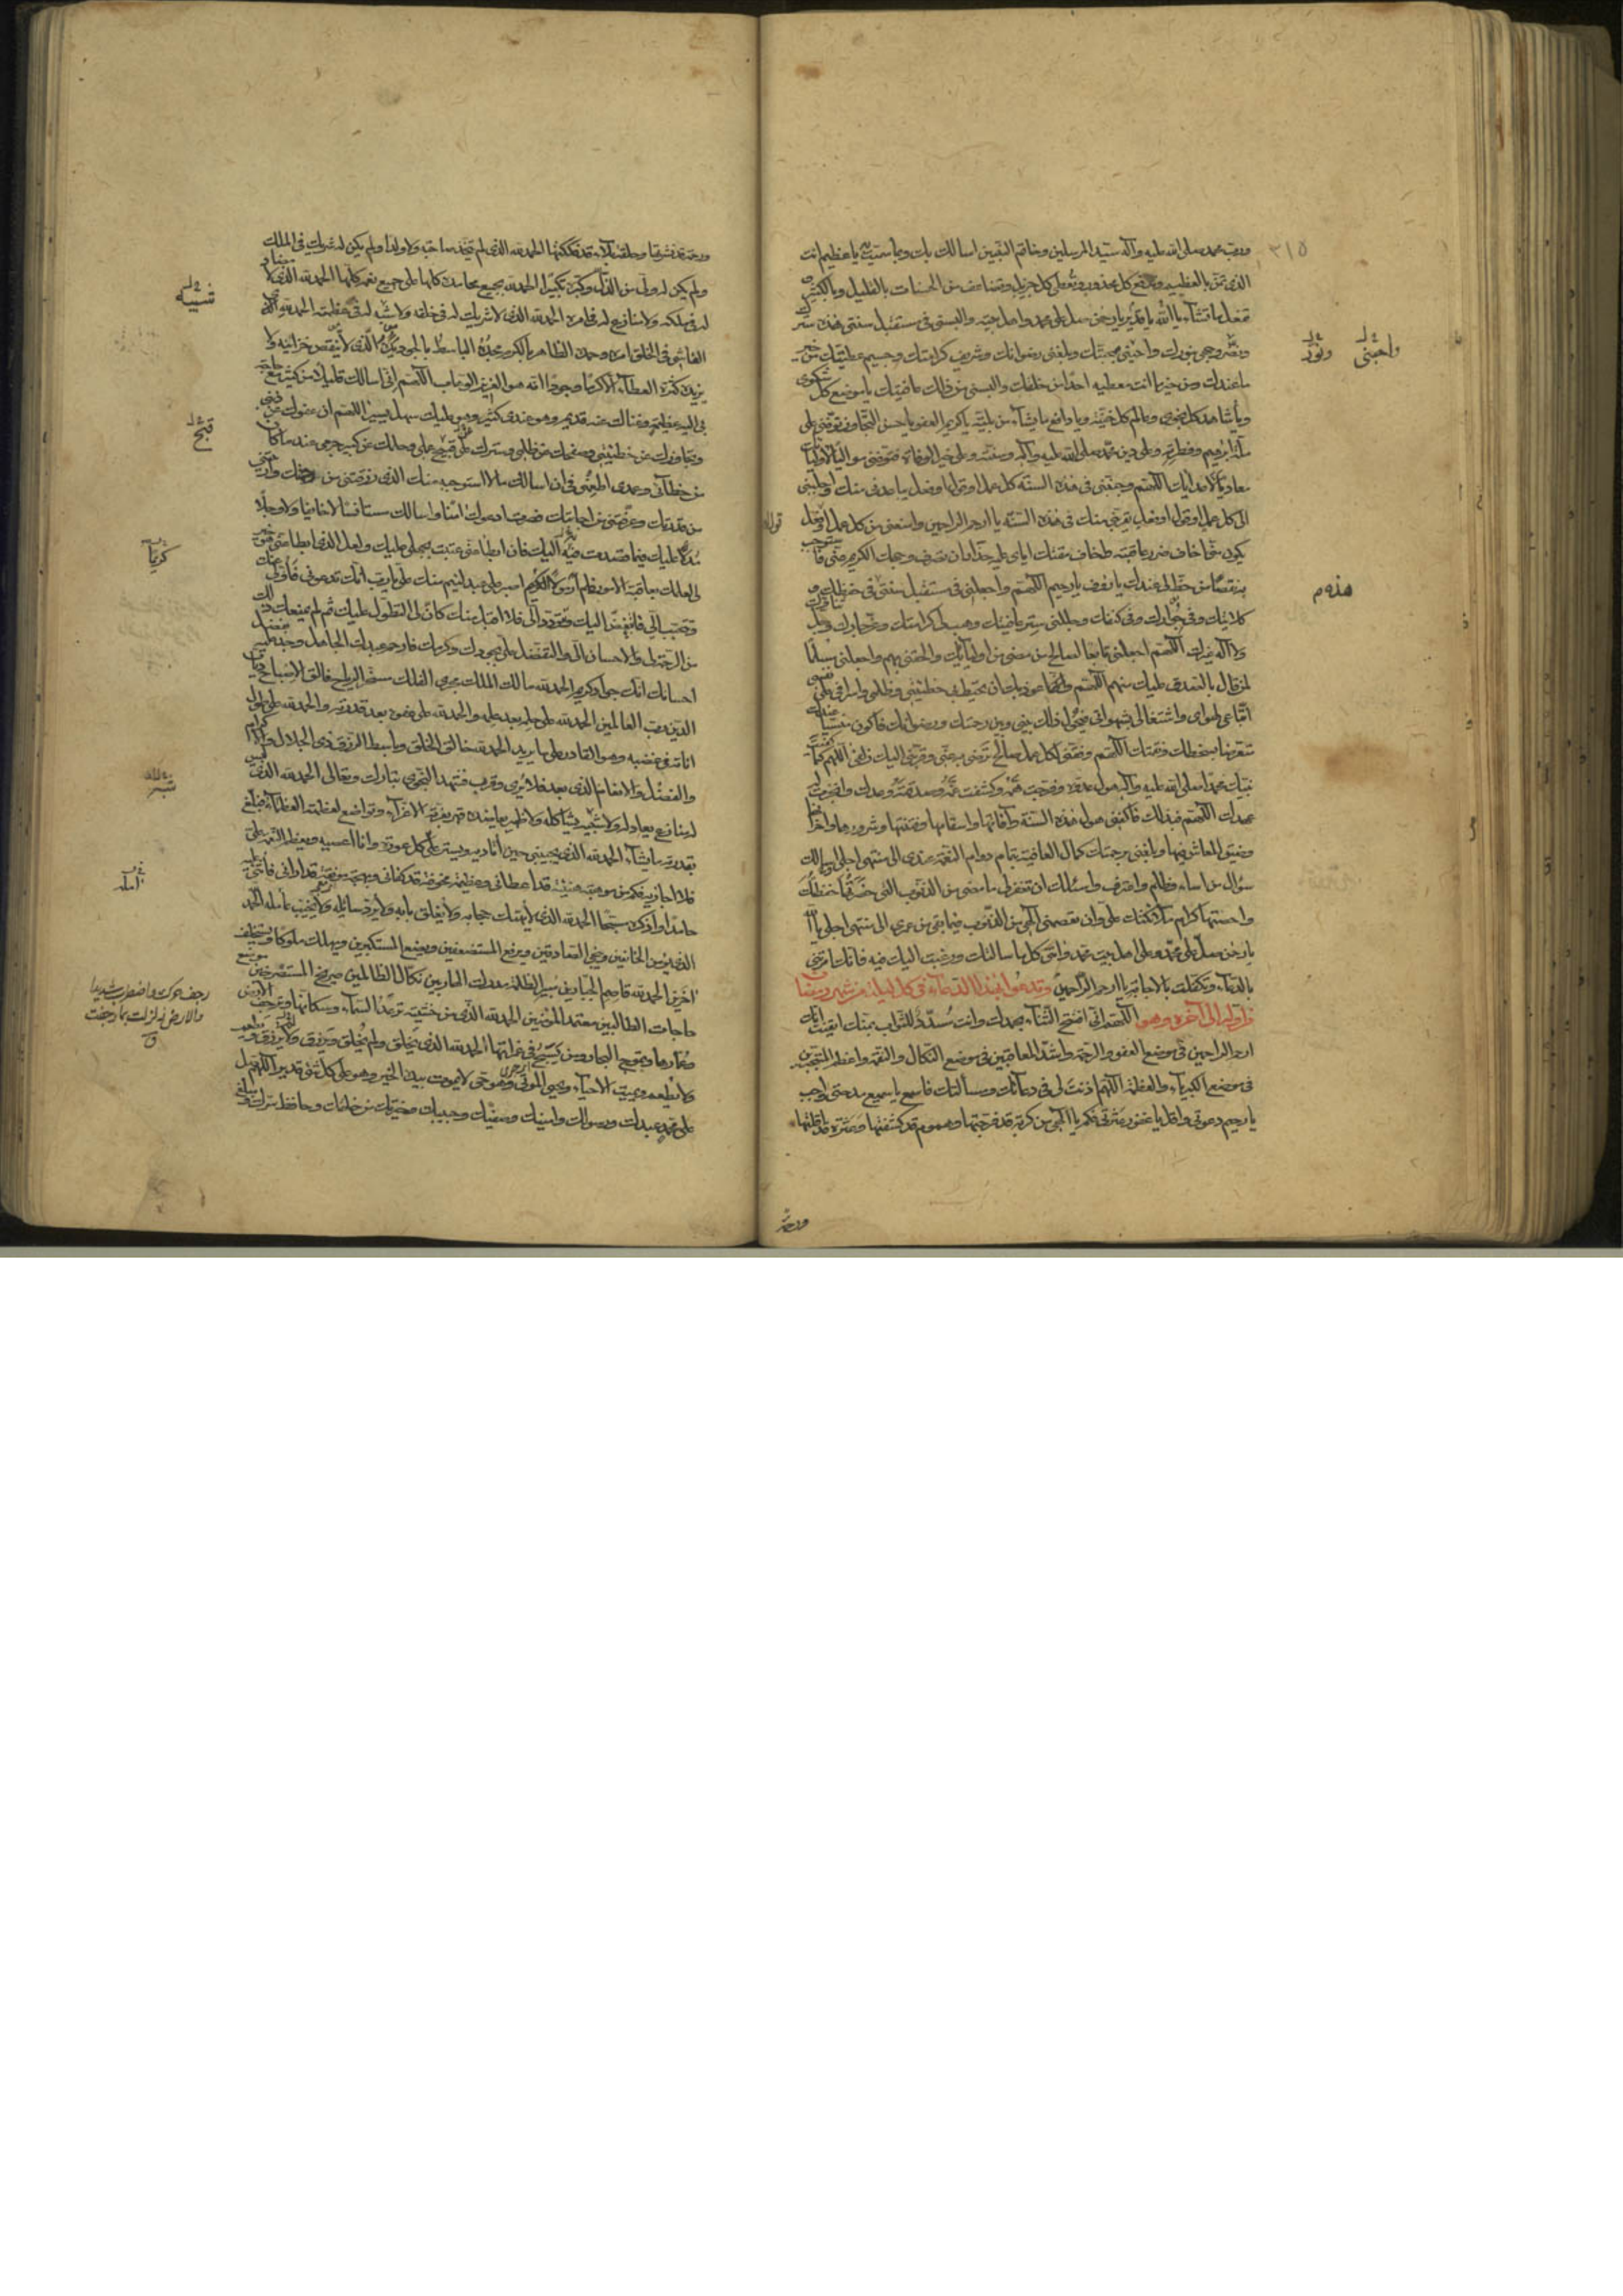 ٣١٥
وربّ محمد صلى الله عليه وآله سيّد المرسلين وخاتم النبيّين اسالك بك وبما سمّيت به يا عظيم انت
الذى تمنّ بالعظيم وتدفع كل محذور وتعطى كل جزيل وتضاعف من الحسنات بالقليل وبالكثير و
تفعل ما تشاء يا الله يا قدير يا رحمن صل على محمد واهل بيته والبسنى فى مستقبل سنتى هذه سترك
ونضّر وجهى بنورك واحبّنى بمحبّتك وبلّغنى رضوانك وشريف كرامتك وجسيم عطيّتك من خير
ما عندك ومن خير ما انت معطيه احدًا من خلقك والبسنى من ذلك عافيتك يا موضع كل شكوى
ويا شاهد كل نجوى وعالم كل خفيّة ويا دافع ما يشاء من بليّة يا كريم العفو يا حسن التجاوز توفّنى على
ملّة ابرهيم وفطرته وعلى دين محمد صلى الله عليه وآله وسنّته وعلى خير الوفاة فتوفّنى مواليًا لاوليائك
معاديًا لاعدائك اللهم وجنّبنى فى هذه السنة كل عمل او قول او فعل يباعدنى منك واجلبنى
الى كل عمل او قول او فعل يقرّبنى منك فى هذه السنة يا ارحم الراحمين وامنعنى من كل عمل او فعل
يكون منّى اخاف ضرر عاقبته واخاف مقتك اياى عليه حذار ان تصرف وجهك الكريم عنّى فاستوجب
به نقصًا من حظّ لى عندك يا رؤف يا رحيم اللهم واجعلنى فى مستقبل سنتى فى حفظك و
كلائتك وفى جوارك وفى كنفك وجلّلنى ستر عافيتك وهب لى كرامتك وعزّ جارك وجلّ ثناؤك
ولا اله غيرك اللهم اجعلنى تابعًا لصالح من مضى من اوليائك والحقنى بهم واجعلنى مسلّمًا
لمن قال بالصدق عليك منهم اللهم واعوذ بك ان تحيط بى خطيئتى وظلمى واسرافى على نفسى
اتّباعى لهواى واشتغالى بشهواتى فيحول ذلك بينى وبين رحمتك ورضوانك فاكون منسيًّا عندك
متعرّضًا لسخطك ونقمتك اللهم وفّقنى لكل عمل صالح ترضى به عنّى وقرّبنى اليك زلفى اللهم كما كفيت
نبيّك محمدا صلى الله عليه وآله هول عدوّه وفرّجت همّه وكشفت غمّه وصدقته وعدك وانجزت له
عهدك اللهم فبذلك فاكفنى هول هذه السنة وآفاتها واسقامها وفتنتها وشرورها واحزانها
وضيق المعاش فيها وبلّغنى برحمتك كمال العافية بتمام دوام النعمة عندى الى منتهى اجلى اسالك
سؤال من اساء وظلم واعترف واسئلك ان تغفر لى ما مضى من الذنوب التى حصرتها حفظتك
واحصتها كرام ملائكتك علىّ وان تعصمنى الهى من الذنوب فيما بقى من عمرى الى منتهى اجلى يا الله
يا رحمن صل على محمد وعلى اهل بيت محمد وآتنى كل ما سالتك ورغبت اليك فيه فانك امرتنى
بالدعاء وتكفّلت بالاجابة يا ارحم الراحمين وتدعوا بهذا الدعاء فى كل ليلة من شهر رمضان
من اوله الى آخره وهو اللهم انى افتتح الثناء بحمدك وانت مسدّد للصواب بمنّك ايقنت انك
ارحم الراحمين فى موضع العفو والرحمة واشدّ المعاقبين فى موضع النكال والنقمة واعظم المتجبّرين
فى موضع الكبرياء والعظمة اللهم اذنت لى فى دعائك ومسألتك فاسمع يا سميع مدحتى واجب
يا رحيم دعوتى واقل يا غفور عثرتى فكم يا الهى من كربة قد فرّجتها وهموم قد كشفتها وعثرة قد اقلتها
ورحمة
واحبّنى
ونوّر
هذه م
ورحمة قد نشرتها وحلقة بلاء قد فككتها الحمد لله الذى لم يتخذ صاحبة ولا ولدًا ولم يكن له شريك فى الملك
ولم يكن له ولىّ من الذلّ وكبّره تكبيرًا الحمد لله بجميع محامده كلها على جميع نعمه كلها الحمد لله الذى لا مضادّ
له فى ملكه ولا منازع له فى امره الحمد لله الذى لا شريك له فى خلقه ولا شبه له فى عظمته الحمد لله الذى
الفاشى فى الخلق امره وحمده الظاهر بالكرم مجده الباسط بالجود يده الذى لا تنقص خزائنه ولا
يزيده كثرة العطاء الا كرمًا وجودًا انه هو العزيز الوهاب اللهم انى اسالك قليلًا من كثير مع حاجة
بى اليه عظيمة وغناك عنه قديم وهو عندى كثير وهو عليك سهل يسير اللهم ان عفوك عن ذنبى
وتجاوزك عن خطيئتى وصفحك عن ظلمى وسترك على قبيح عملى وحلمك عن كبير جرمى عند ما كان
من خطائى وعمدى اطمعنى فى ان اسالك ما لا استوجبه منك الذى رزقتنى من رحمتك واريتنى
من قدرتك وعرّفتنى من اجابتك فصرت ادعوك آمنًا واسالك مستانسًا لا خائفًا ولا وجلًا
مدلًّا عليك فيما قصدت فيه اليك فان ابطا عنّى عتبت بجهلى عليك ولعل الذى ابطا عنّى هو خير
لى لعلمك بعاقبة الامور فلم ار مولًى كريم اصبر على عبد لئيم منك علىّ يا ربّ انك تدعونى فاولّى عنك
وتتحبّب الىّ فاتبغّض اليك وتتودّد الىّ فلا اقبل منك كانّ لى التطول عليك ثم لم يمنعك ذلك
من الرحمة لى والاحسان الىّ والتفضّل علىّ بجودك وكرمك فارحم عبدك الجاهل وجد عليه بفضل
احسانك انك جواد كريم الحمد لله مالك الملك مجرى الفلك مسخّر الرياح فالق الاصباح ديّان
الدين رب العالمين الحمد لله على حلمه بعد علمه والحمد لله على عفوه بعد قدرته والحمد لله على طول
اناته فى غضبه وهو القادر على ما يريد الحمد لله خالق الخلق وباسط الرزق ذى الجلال والاكرام
والفضل والانعام الذى بعد فلا يرى وقرب فشهد النجوى تبارك وتعالى الحمد لله الذى ليس
له منازع يعادله ولا شبيه يشاكله ولا ظهير يعاضده قهر بعزّته الاعزّاء وتواضع لعظمته العظماء فبلغ
بقدرته ما يشاء الحمد لله الذى يجيبنى حين اناديه ويستر علىّ كل عورة وانا اعصيه ويعظم النعمة علىّ
فلا اجازيه فكم من موهبة هنيئة قد اعطانى وعظيمة مخوفة قد كفانى وبهجة مونقة قد ارانى فاثنى عليه
حامدًا واذكره مسبّحًا الحمد لله الذى لا يهتك حجابه ولا يغلق بابه ولا يردّ سائله ولا يخيّب آمله الحمد لله
الذى يؤمن الخائفين وينجى الصادقين ويرفع المستضعفين ويضع المستكبرين ويهلك ملوكًا ويستخلف
آخرين الحمد لله قاصم الجبّارين مبير الظلمة مدرك الهاربين نكال الظالمين صريخ المستصرخين موضع
حاجات الطالبين معتمد المؤمنين الحمد لله الذى من خشيته ترعد السماء وسكانها وترجف الارض
وعمّارها وتموج البحار ومن يسبّح فى غمراتها الحمد لله الذى يخلق ولم يخلق ويرزق ولا يرزق ويطعم
ولا يطعم ويميت الاحياء ويحيى الموتى وهو حىّ لا يموت بيده الخير وهو على كل شئ قدير اللهم صل
على محمد عبدك ورسولك وامينك وصفيّك وحبيبك وخيرتك من خلقك وحافظ سرّك ومبلّغ
شبيه
قبيح
كريمًا
ستر
آمله
رجف حرك واضطرب شديدا
والارض زلزلت كارجفت
ق